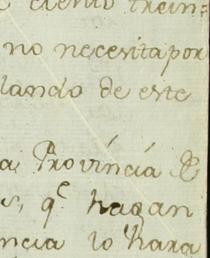 ciento trein=
no necesita por
lando de este
a Província &
s, q.e hagan
ncia lo hara